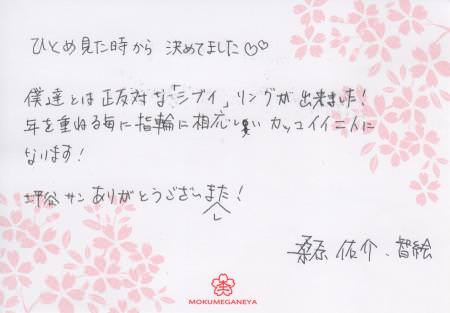 ひとめ見た時から 決めてました♡♡
僕達とは正反対な「シブイ」リングが出来ました!
年を重ねる毎に指輪に相応しい カッコイイ二人に
なります!
坪谷サン ありがとうございました!
桑原 佑介、智絵
MOKUMEGANEYA